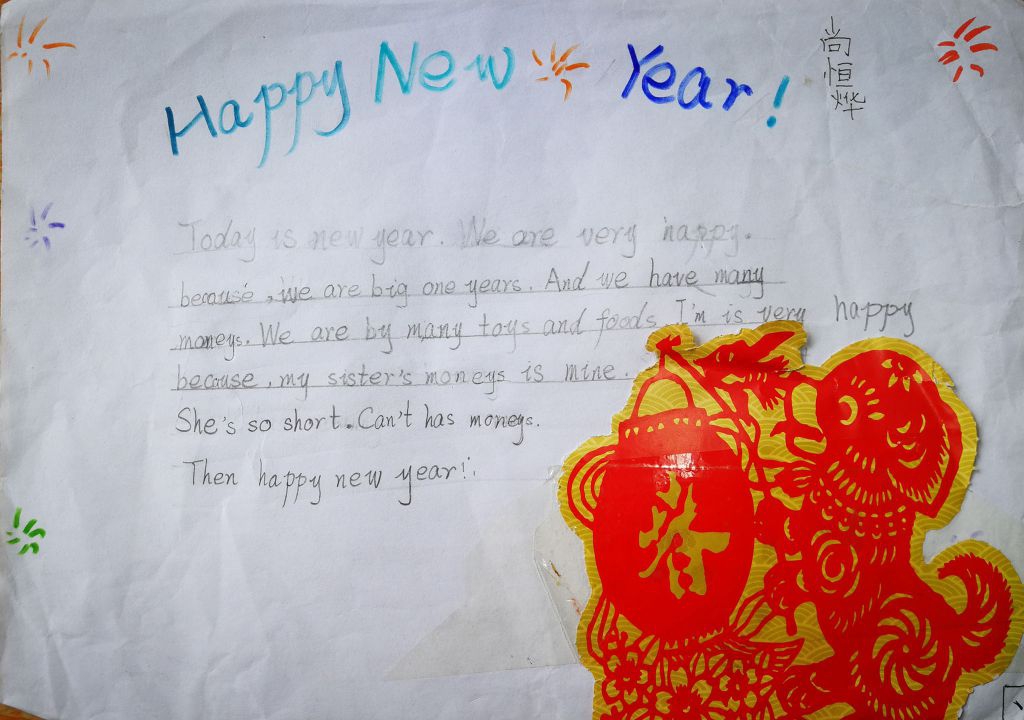 Happy New Year!
尚恒烨
Today is new year. We are very happy.
because, We are big one years. And we have many
moneys. We are by many toys and foods I'm is very happy
because, my sister's moneys is mine.
She's so short. Can't has moneys.
Then happy new year!
春